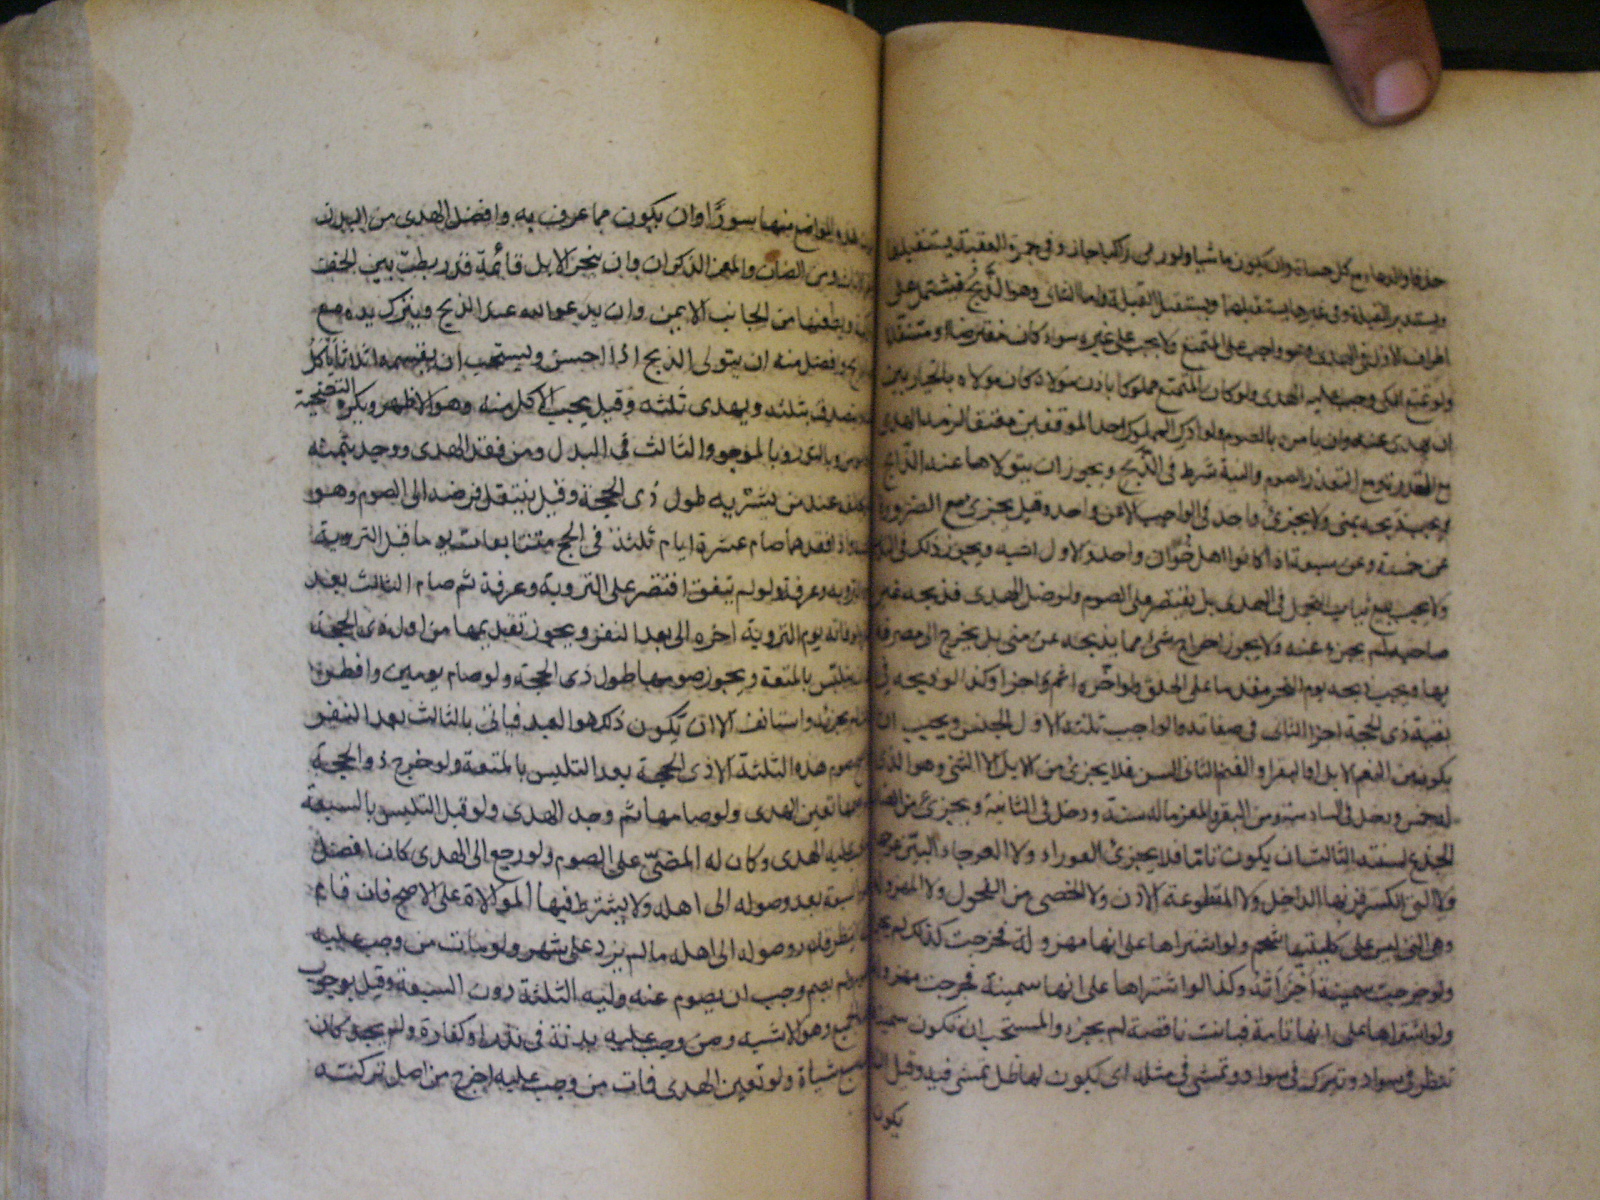 حذفا والدعاء مع كل حصاة وان يكون ماشيا ولو رمى راكبا جاز وفى جمرة العقبة يستقبلها
ويستدبر القبلة وفى غيرها يستقبلها ويستقبل القبلة واما الثانى وهو الذبح فيشتمل على
اطراف الاول فى الهدى وهو واجب على المتمتع ولا يجب على غيره سواء كان مفترضا او متنفلا
ولو تمتع المكى وجب عليه الهدى ولو كان المتمتع مملوكا باذن مولاه كان مولاه بالخيار بين
ان يهدى عنه وان يامره بالصوم ولو ادرك المملوك احد الموقفين معتقا لزمه الهدى
مع القدرة ومع التعذر الصوم والنية شرط فى الذبح ويجوز ان يتولاها عنه الذابح
ويجب ذبحه بمنى ولا يجزئ واحد فى الواجب الا عن واحد وقيل يجزئ مع الضرورة
عن خمسة وعن سبعة اذا كانوا اهل خوان واحد والاول اشبه ويجوز ذلك فى
ولا يجب بيع ثياب التجمل فى الهدى بل يقتصر على الصوم ولو ضل الهدى فذبحه غير
صاحبه لم يجزء عنه ولا يجوز اخراج شئ مما يذبحه عن منى بل يخرج الى مصرفه
بها ويجب ذبحه يوم النحر مقدما على الحلق ولو اخره اثم واجزا وكذا لو ذبحه فى
بقية ذى الحجة اجزا الثانى فى صفاته والواجب ثلثة الاول الجنس ويجب ان
يكون من النعم الابل او البقر او الغنم الثانى السن فلا يجزئ من الابل الا الثنى وهو الذى
له خمس ودخل فى السادسة ومن البقر والمعز ما له سنة ودخل فى الثانية ويجزئ من الضان
الجذع لسنته الثالث ان يكون تاما فلا يجزئ العوراء ولا العرجاء البين عرجها
ولا التى انكسر قرنها الداخل ولا المقطوعة الاذن ولا الخصى من الفحول ولا المهزولة
وهى التى ليس على كليتيها شحم ولو اشتراها على انها مهزولة فخرجت كذلك لم يجزه
ولو خرجت سمينة اجزاته وكذا لو اشتراها على انها سمينة فخرجت مهزولة
ولو اشتراها على انها تامة فبانت ناقصة لم يجزء والمستحب ان تكون سمينة
تنظر فى سواد وتبرك فى سواد وتمشى فى مثله اى يكون لها ظل تمشى فيه وقيل ان
يكون
هذه المواضع منها سودا وان يكون مما عرف به وافضل الهدى من البدن
ومن الضان والمعز الذكران وان ينحر الابل قائمة قد ربطت بين الخف
ويطعنها من الجانب الايمن وان يدعو الله عند الذبح ويترك يده مع
وافضل منه ان يتولى الذبح اذا احسن ويستحب ان يقسمه اثلاثا ياكل
بثلثه ويهدى ثلثه وقيل يجب الاكل منه وهو الاظهر ويكره التضحية
وبالثور وبالموجوء الثالث فى البدل ومن فقد الهدى ووجد ثمنه
عند من يشتريه طول ذى الحجة وقيل ينتقل فرضه الى الصوم وهو
فقدهما صام عشرة ايام ثلثة فى الحج متتابعات يوما قبل التروية
والتروية وعرفة ولو لم يتفق اقتصر على التروية وعرفة ثم صام الثالث بعد
يوم التروية اخره الى بعد النفر ويجوز تقديمها من اول ذى الحجة
بالمتعة ويجوز صومها طول ذى الحجة ولو صام يومين وافطر
لم يجزئه واستانف الا ان يكون ذلك هو العيد فياتى بالثالث بعد النفر
صوم هذه الثلثة الا ذى الحجة بعد التلبس بالمتعة ولو خرج ذو الحجة
تعين الهدى ولو صامها ثم وجد الهدى ولو قبل التلبس بالسبعة
عليه الهدى وكان له المضى على الصوم ولو رجع الى الهدى كان افضل
السبعة بعد وصوله الى اهله ولا يشترط فيها الموالاة على الاصح فان قام
وصوله الى اهله ما لم يزد على شهر ولو مات من وجب عليه
ولم يصم وجب ان يصوم عنه وليه الثلثة دون السبعة وقيل بوجوب
وهو الاشبه ومن وجب عليه بدنة فى نذر او كفارة ولم يجد كان
سبع شياة ولو تعين الهدى فمات من وجب عليه اخرج من اصل تركته